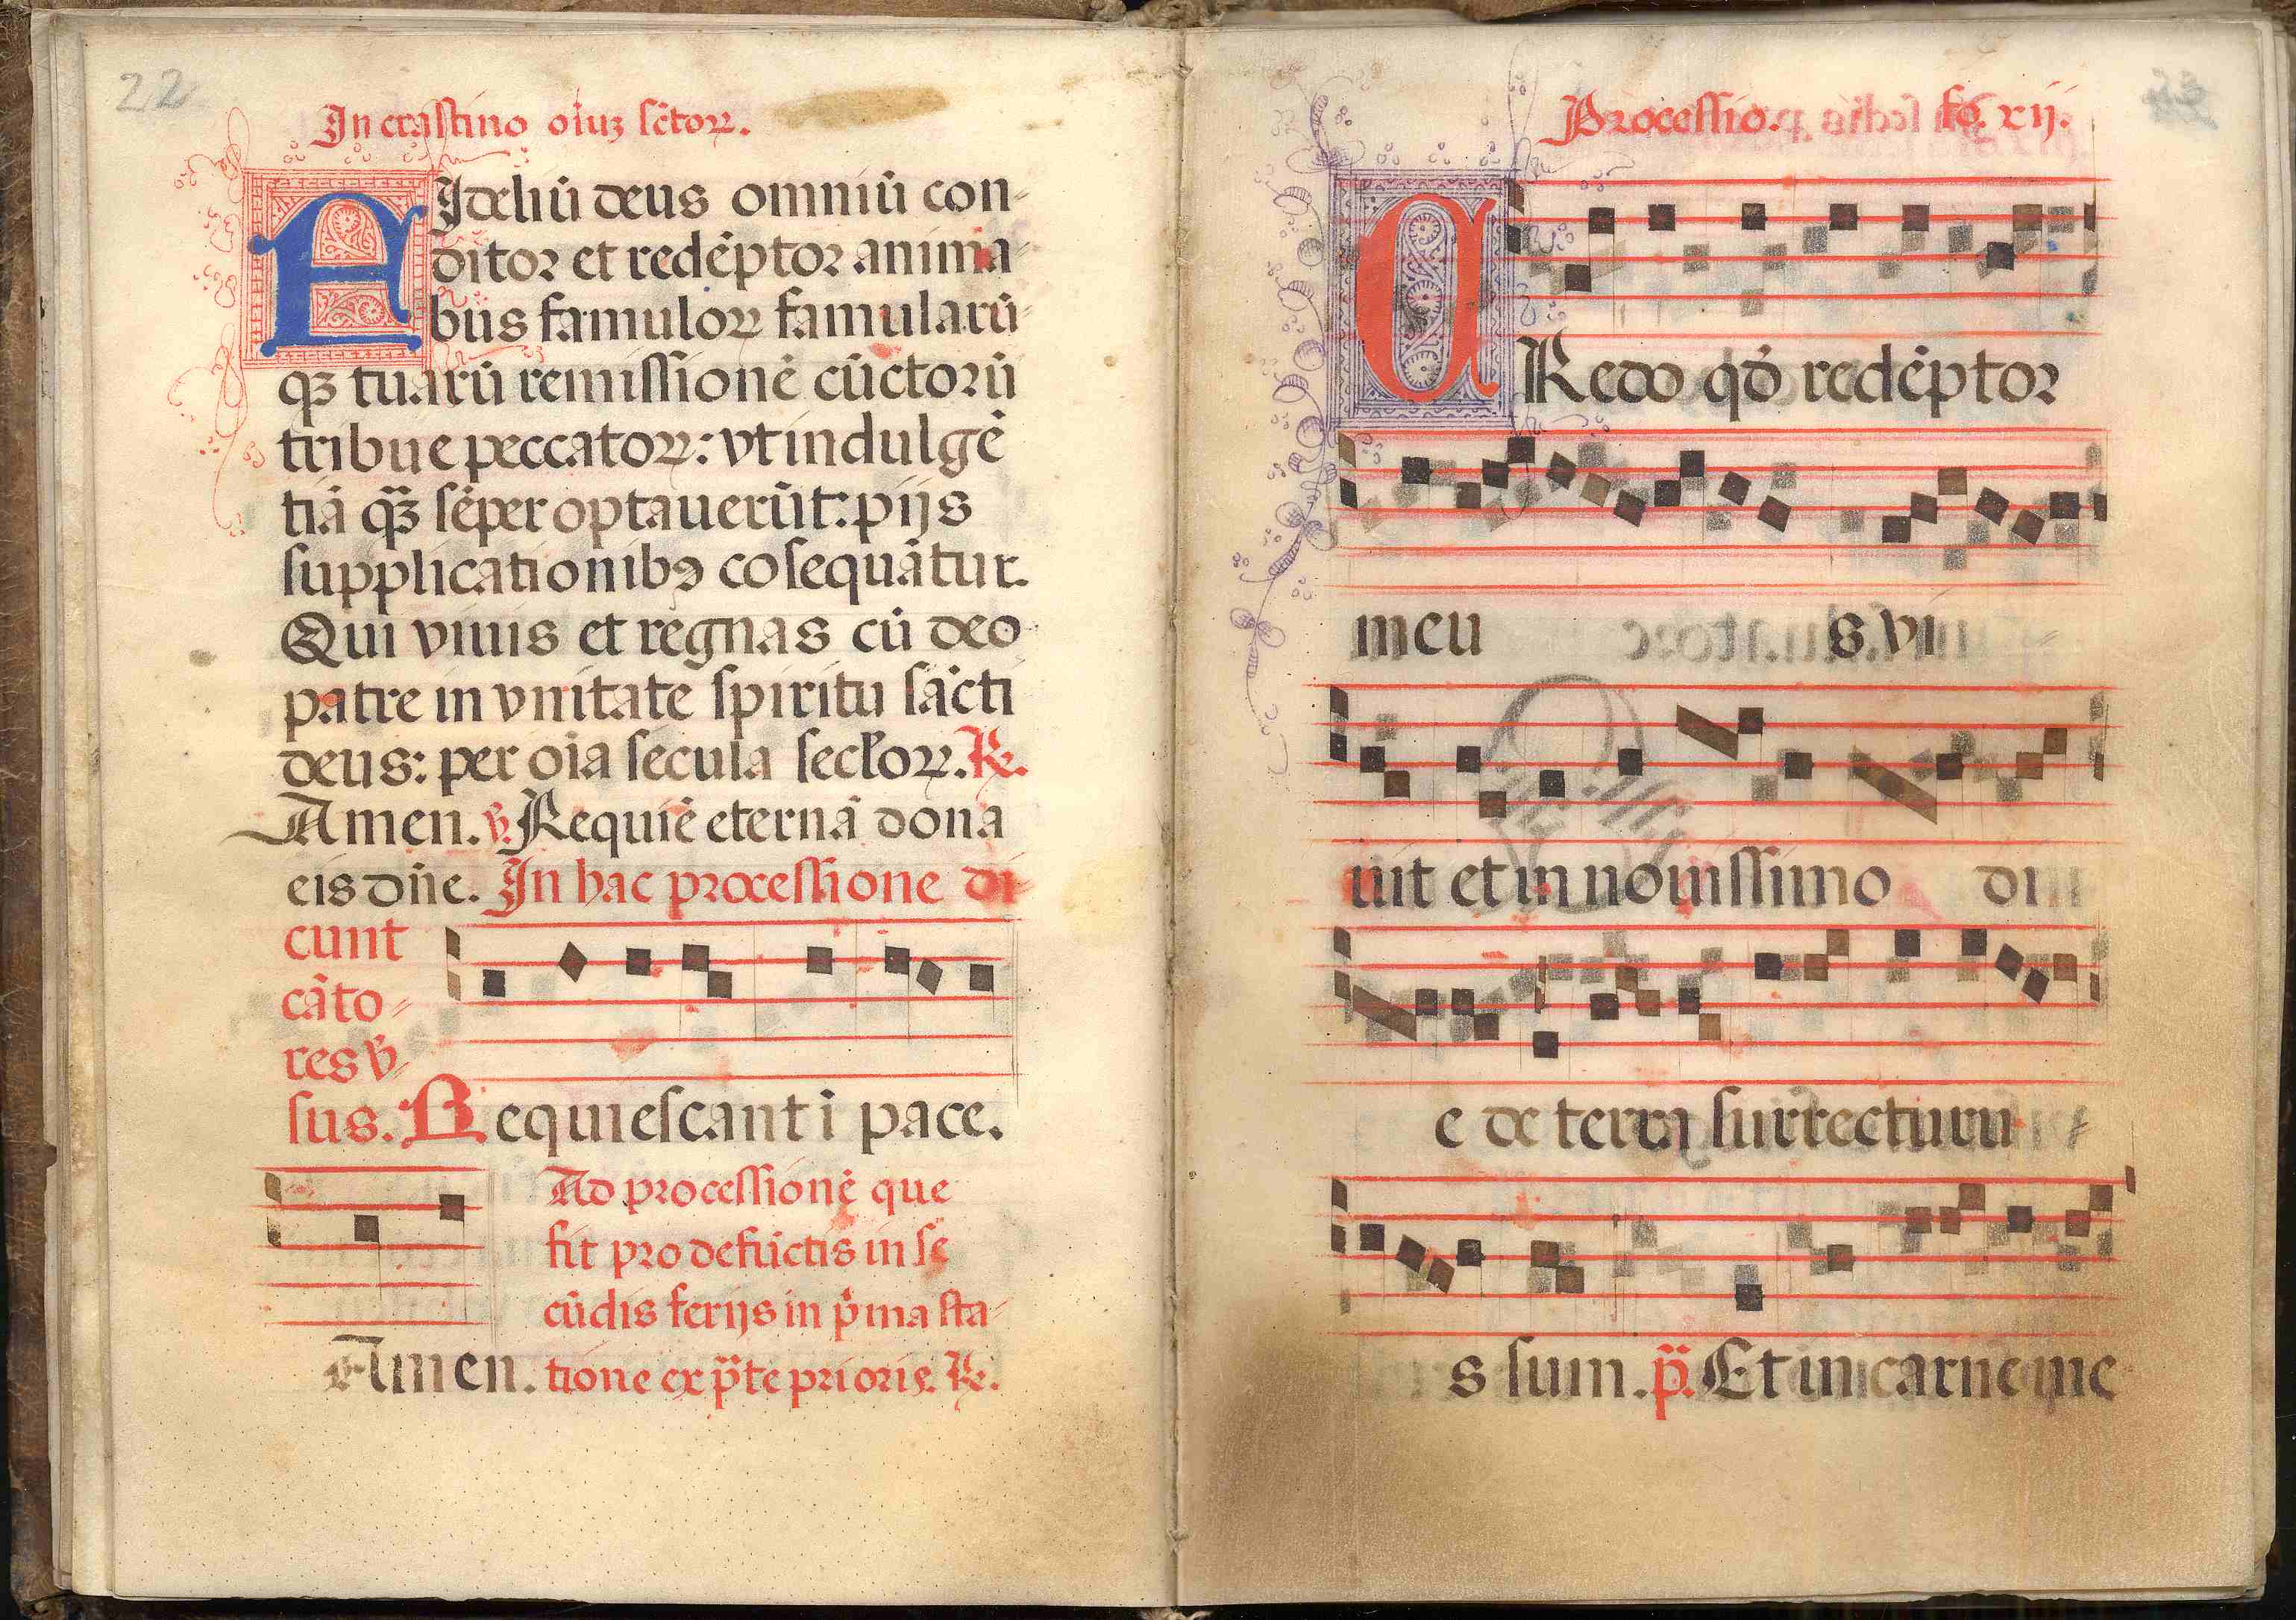 22
In crastino oı̄uꝫ sc̄toꝝ.
FIdeliū deus omniū con-
ditor et redēptor anima-
bus famuloꝝ famularū-
qꝫ tuarū remissionē cūctorū
tribue peccatoꝝ: vt indulgē
tiā quā sēper optauerūt: pijs
supplicationibꝰ cōsequātur.
Qui viuis et regnas cū deo
patre in vnitate spiritu sācti
deus: per oīa secula secĺoꝝ. ℟.
Amen. ℣. Requiē eternā dona
eis dn̄e. In hac processione di-
cunt
cāto-
res v̄-
sus. Requiescant ī pace.
Ad processionē que
fit pro defūctis in se
cūdis ferijs in p̄ma sta-
Amen. tione ex p̄te prioris. ℟.
Processio. fo. xij.
CRedo qd̄ redēptor
meu s. vi
uit et in nouissimo di
e de terra surrecturu
s sum. p̄. Et in carne me